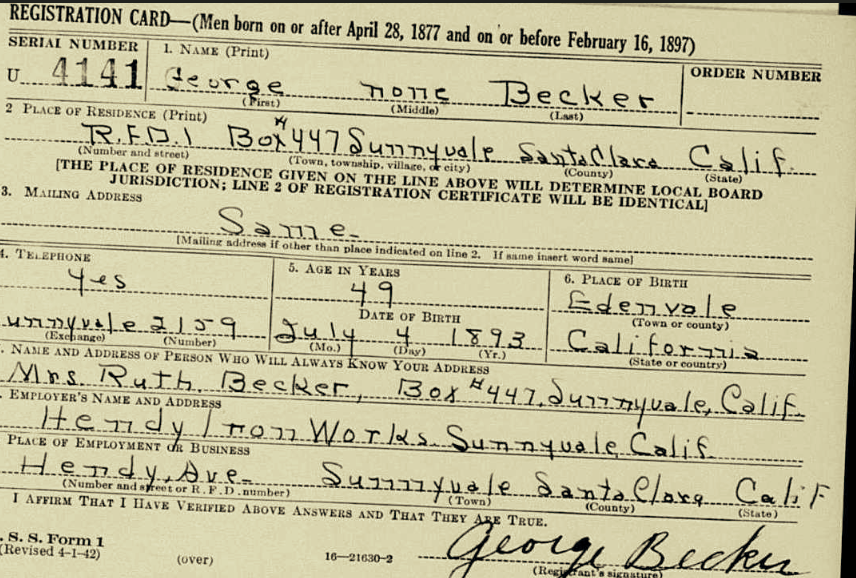 REGISTRATION CARD—(Men born on or after April 28, 1877 and on or before February 16, 1897)
SERIAL NUMBER 1. NAME (Print) ORDER NUMBER
U 4141 George none Becker
(First) (Middle) (Last)
2 PLACE OF RESIDENCE (Print)
R.F.D.1 Box #447 Sunnyvale Santa Clara Calif.
(Number and street) (Town, township, village, or city) (County) (State)
[THE PLACE OF RESIDENCE GIVEN ON THE LINE ABOVE WILL DETERMINE LOCAL BOARD
JURISDICTION; LINE 2 OF REGISTRATION CERTIFICATE WILL BE IDENTICAL]
3. MAILING ADDRESS
Same
[Mailing address if other than place indicated on line 2. If same insert word same]
4. TELEPHONE 5. AGE IN YEARS 6. PLACE OF BIRTH
yes 49 Edenvale
DATE OF BIRTH (Town or county)
unnyvale 2159 July 4 1893 California
(Exchange) (Number) (Mo.) (Day) (Yr.) (State or country)
. NAME AND ADDRESS OF PERSON WHO WILL ALWAYS KNOW YOUR ADDRESS
Mrs. Ruth Becker, Box #447, Sunnyvale, Calif.
. EMPLOYER'S NAME AND ADDRESS
Hendy Iron Works Sunnyvale Calif
PLACE OF EMPLOYMENT OR BUSINESS
Hendy, Ave Sunnyvale Santa Clara Calif
(Number and street or R. F. D. number) (Town) (County) (State)
I AFFIRM THAT I HAVE VERIFIED ABOVE ANSWERS AND THAT THEY ARE TRUE.
. S. S. Form 1
(Revised 4-1-42) (over) 16—21630-2 George Becker
(Registrant's signature)